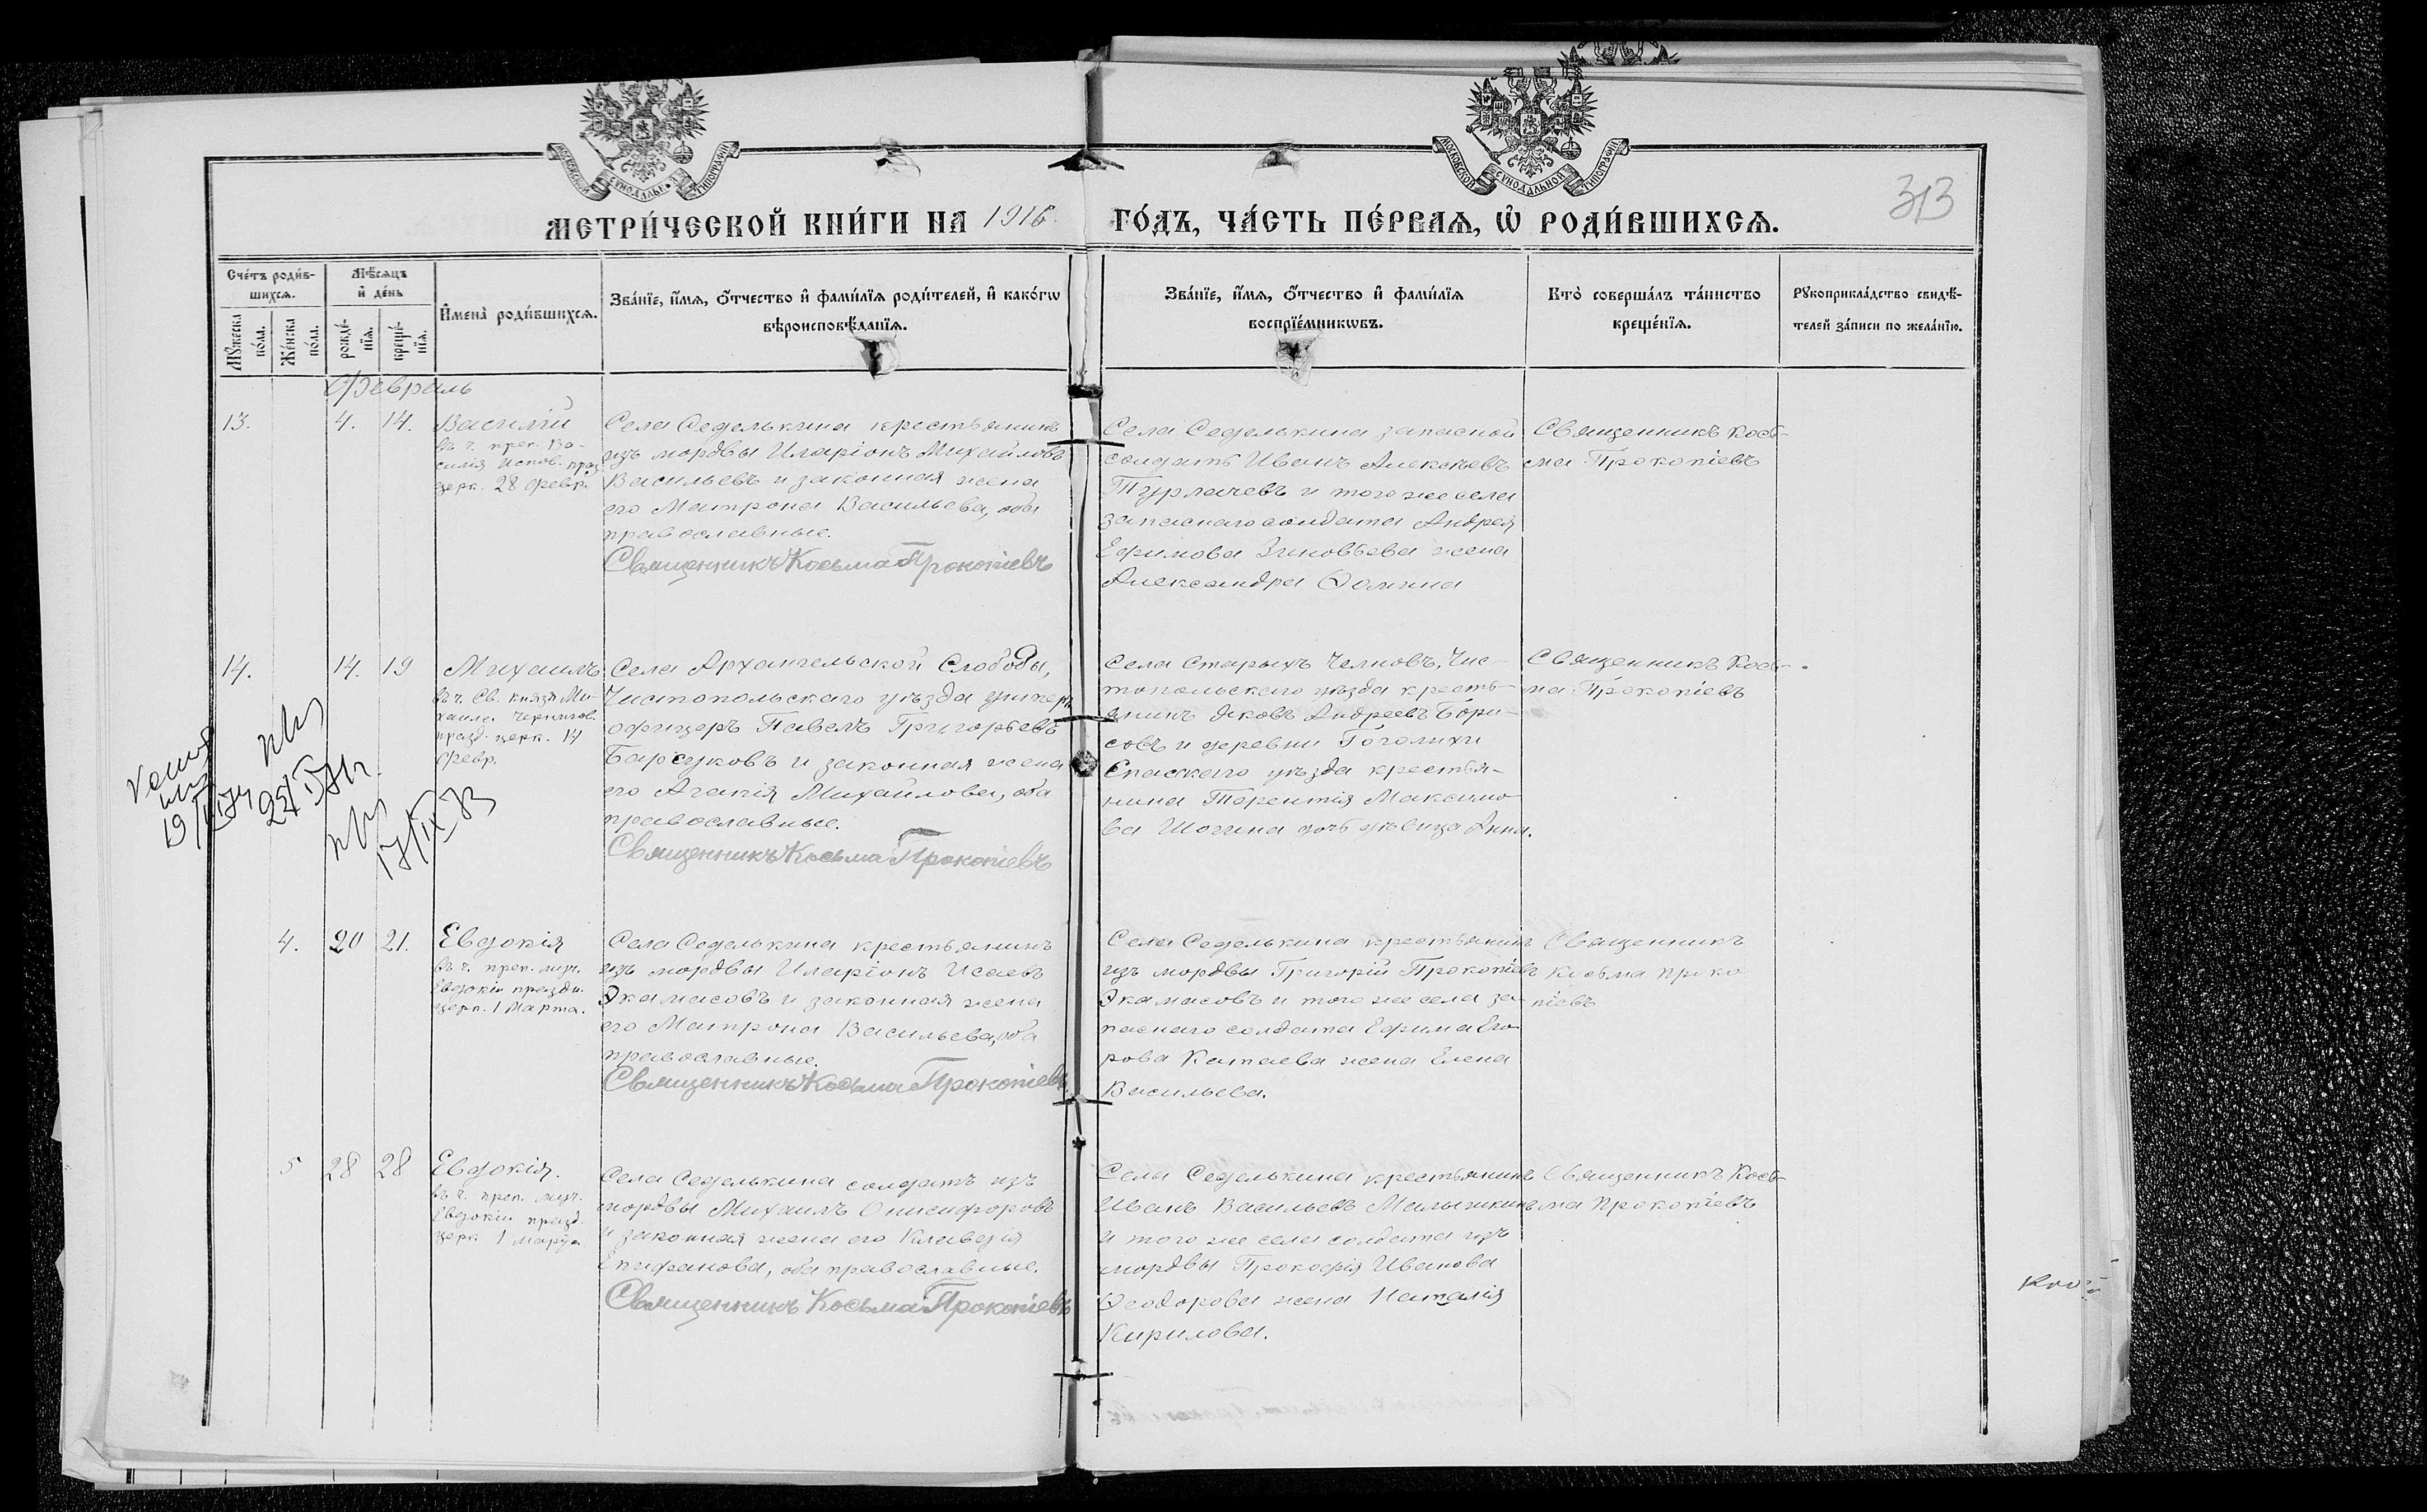 МОСКОВСКОЙ СѴНОДАЛЬНОЙ ТИПОГРАФІИ
МОСКОВСКОЙ СѴНОДАЛЬНОЙ ТИПОГРАФІИ
313
МЕТРИ́ЧЕСКОЙ КНИ́ГИ НА 1916 ГО́ДЪ, ЧА́СТЬ ПЕ́РВАѦ, Ѡ҆ РОДИ́ВШИХСѦ.
Сче́тъ роди́в-
шихсѧ.
Мꙋ́жеска по́ла.
Же́нска по́ла.
Мѣ́сѧцъ
и҆ де́нь
рожде́-
нїѧ.
креще́-
нїѧ.
И҆мена̀ роди́вшихсѧ.
Зва́нїе, и҆́мѧ, ѻ҆́тчество и҆ фами́лїѧ роди́телей, и҆ како́гѡ
вѣроисповѣ́данїѧ.
Зва́нїе, и҆́мѧ, ѻ҆́тчество и҆ фами́лїѧ
воспрїе́мникѡвъ.
Кто̀ соверша́лъ та́инство
креще́нїѧ.
Рꙋкоприкла́дство свидѣ́-
телей за́писи по жела́нїю.
Февраль
13. 4. 14. Василій
въ ч. преп. Ва-
силія испов. празд.
церк. 28 февр.
Села Седелькина крестьянинъ
изъ мордвы Иларіонъ Михайловъ
Васильевъ и законная жена
его Матрона Васильева, оба
православные.
Священникъ Косьма Прокопіевъ
Села Седелькина запасной
солдатъ Иванъ Алексѣевъ
Турлачевъ и того же села
запаснаго солдата Андрея
Ефимова Зиновьева жена
Александра Ѳомина
Священникъ Кось-
ма Прокопіевъ
14. 14. 19 Михаилъ
въ ч. Св. князя Ми-
хаила Чернигов.
празд. церк. 14
Февр.
Села Архангельской Слободы,
Чистопольскаго уѣзда унтеръ
офицеръ Павелъ Григорьевъ
Барсуковъ и законная жена
его Агапія Михайлова, оба
православные.
Священникъ Косьма Прокопіевъ
Села Старыхъ Челновъ, Чис-
топольскаго уѣзда кресть-
янинъ Яковъ Андреевъ Бори-
совъ и деревни Гоголихи
Спасскаго уѣзда крестья-
нина Терентія Максимо-
ва Шогина дочь дѣвица Анна.
Священникъ Кось-
ма Прокопіевъ
17/IX 73
4. 20 21. Евдокія
въ ч. преп. муч.
Евдокіи праздн.
церк. 1 Марта.
Села Седелькина крестьянинъ
изъ мордвы Иларіонъ Исаевъ
Экамасовъ и законная жена
его Матрона Васильева, оба
православные.
Священникъ Косьма Прокопіевъ
Села Седелькина крестьянинъ
изъ мордвы Григорій Прокопіевъ
Экамасовъ и того же села за-
паснаго солдата Ефима Его
рова Катаева жена Елена
Васильева.
Священникъ
Косьма Проко
піевъ
5 28 28 Евдокія.
въ ч. преп. муч.
Евдокіи празд.
церк 1 марта
Села Седелькина солдатъ изъ
мордвы Михаилъ Онисифоровъ
и законная жена его Клавдія
Епифанова, оба православные.
Священникъ Косьма Прокопіевъ
Села Седелькина крестьянинъ
Иванъ Васильевъ Малышкинъ
и того же села солдата изъ
мордвы Прокофія Иванова
Ѳеодорова жена Наталія
Кирилова.
Священникъ Кось-
ма Прокопіевъ